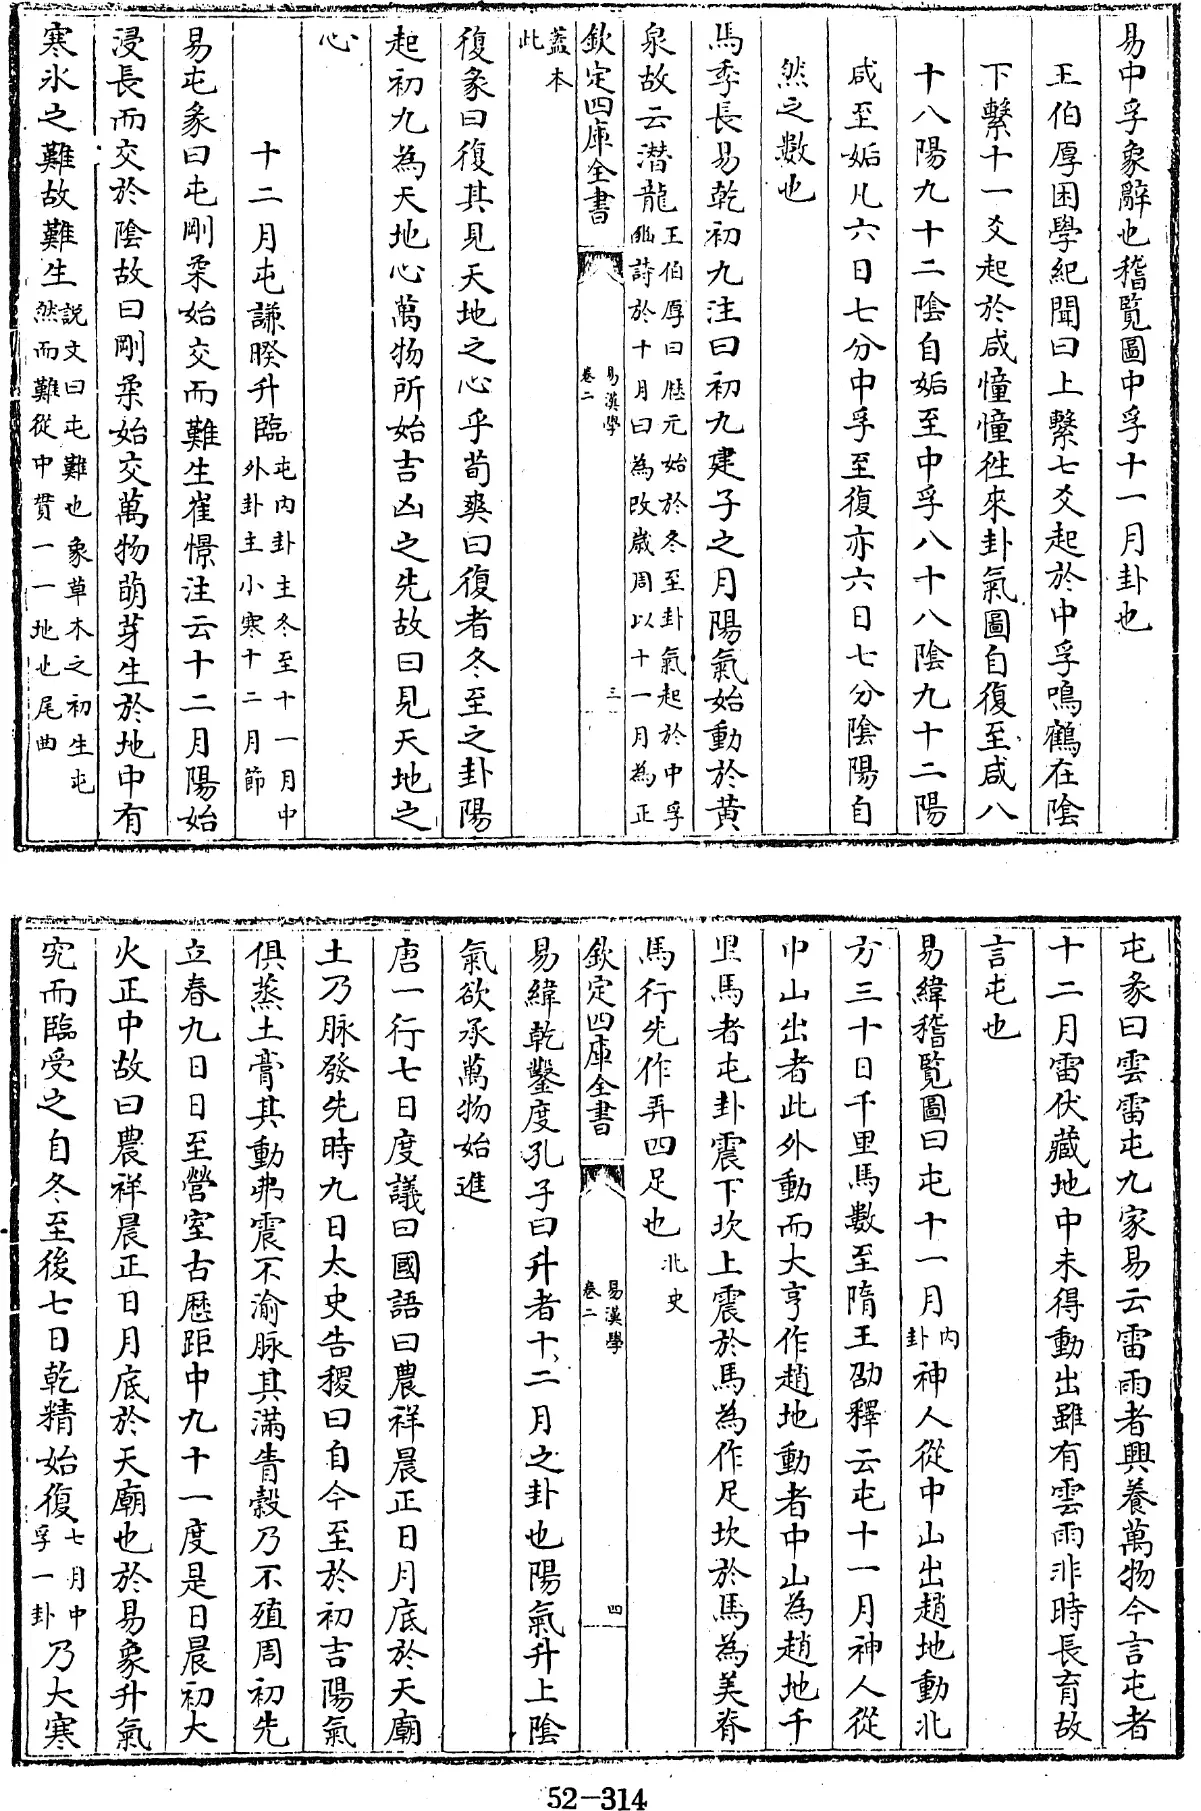 易中孚象辭也稽覽圖中孚十一月卦也
王伯厚困學紀聞曰上繫七爻起於中孚鳴鶴在陰
下繫十一爻起於咸憧憧徃來卦氣圖自復至咸八
十八陽九十二陰自姤至中孚八十八陰九十二陽
咸至姤凡六日七分中孚至復亦六日七分陰陽自
然之數也
馬季長易乾初九注曰初九建子之月陽氣始動於黄
泉故云潜龍王伯厚曰厯元始於冬至卦氣起於中孚
豳詩於十月曰為改歲周以十一月為正
欽定四庫全書
易漢學
卷二
三
蓋本
此
復彖曰復其見天地之心乎荀爽曰復者冬至之卦陽
起初九為天地心萬物所始吉凶之先故曰見天地之
心
十二月屯謙睽升臨屯内卦主冬至十一月中
外卦主小寒十二月節
易屯彖曰屯剛柔始交而難生崔憬注云十二月陽始
浸長而交於陰故曰剛柔始交萬物萌芽生於地中有
寒氷之難故難生説文曰屯難也象草木之初生屯
然而難從屮貫一一地也尾曲
屯彖曰雲雷屯九家易云雷雨者興養萬物今言屯者
十二月雷伏藏地中未得動出雖有雲雨非時長育故
言屯也
易緯稽覽圖曰屯十一月内
卦神人從中山出趙地動北
方三十日千里馬數至隋王劭釋云屯十一月神人從
中山出者此卦動而大亨作趙地動者中山為趙地千
里馬者屯卦震下坎上震於馬為作足坎於馬為美脊
馬行先作弄四足也北史
欽定四庫全書
易漢學
卷二
四
易緯乾鑿度孔子曰升者十二月之卦也陽氣升上陰
氣欲承萬物始進
唐一行七日度議曰國語曰農祥晨正日月底於天廟
土乃脉發先時九日太史告稷曰自今至於初吉陽氣
俱蒸土膏其動弗震不渝脉其滿眚穀乃不殖周初先
立春九日日至營室古厯距中九十一度是日晨初大
火正中故曰農祥晨正日月底於天廟也於易象升氣
究而臨受之自冬至後七日乾精始復七月中
孚一卦乃大寒
52-314